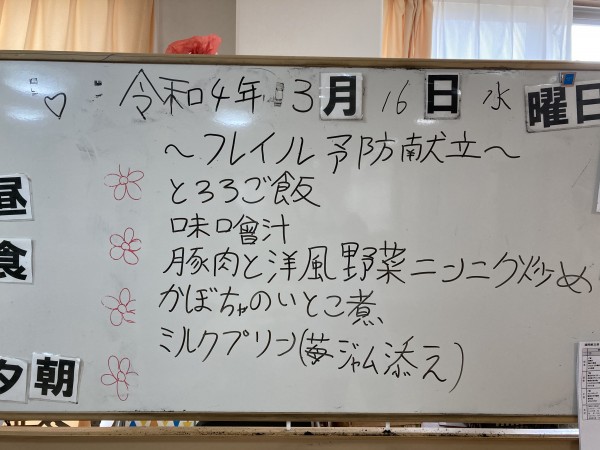 令和4年 3月 16日 水曜日
～フレイル予防献立～
とろろご飯
味噌汁
豚肉と洋風野菜ニンニク炒め
かぼちゃのいとこ煮
ミルクプリン(苺ジャム添え)
昼
食
夕 朝